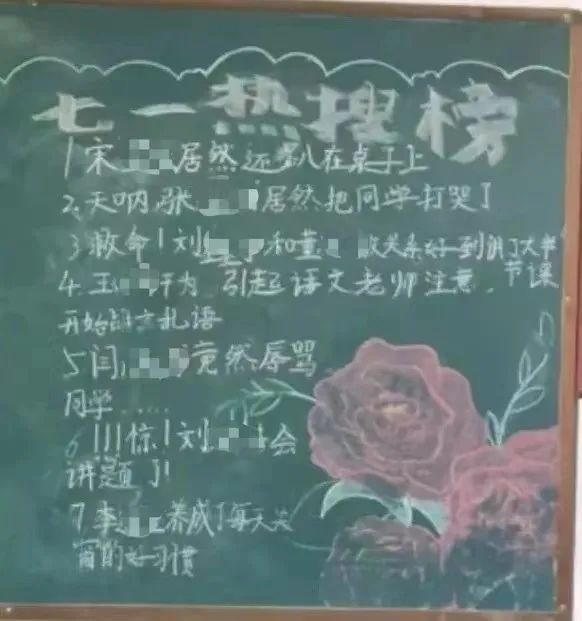 七一热搜榜
1 宋 居然还趴在桌子上
2.天呐,张 居然把同学打哭了
3.救命!刘 和董 关系好到讲了大半
节课
4.王 为引起语文老师注意,
开始 扎语
5闫 竟然辱骂
同学……
6 !!!惊!刘 会
讲题了!
7.李 养成了每天关
窗的好习惯